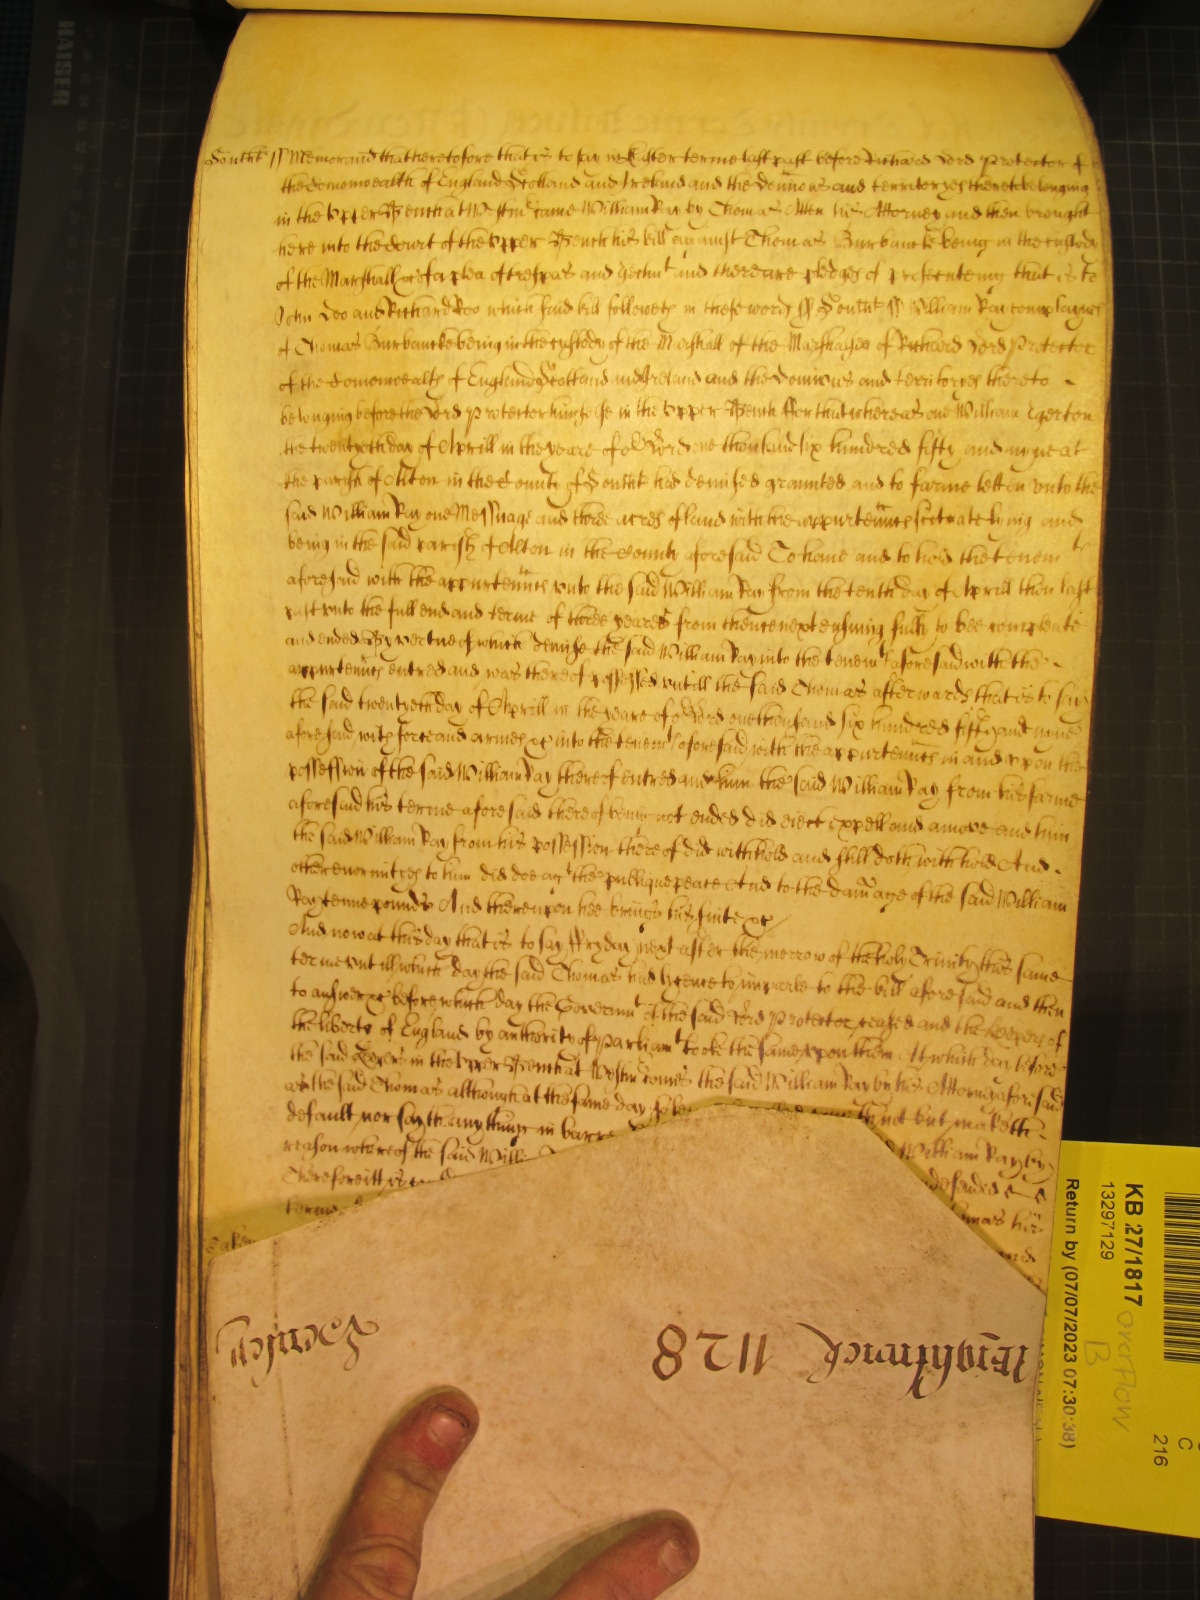 Southt ss Memorand that heretofore that is to say in Easter terme last past before Richard Lord Protector of
the Comonwealth of England Scotland and Ireland and the Dominions and territoryes thereto belonging
in the Upper Bench at Westm came William Ray by Thomas Allen his Attorney and then brought
here into the Court of the Upper Bench his bill against Thomas Burbancke being in the custody
of the Marshall &c of a plea of trespas and Ejectmt and there are pledges of prosecuteing that is to
John Doo and Richard Roo which said bill followeth in these words ss Southt ss William Ray complaynes
of Thomas Burbancke being in the custody of the Marshall of the Marshalsea of Richard Lord Protector
of the Comonwealth of England Scotland and Ireland and the Dominions and territoryes thereto
belonging before the Lord Protector himselfe in the Upper Bench ffor that whereas one William Egerton
the twentyeth day of Aprill in the yeare of our Lord one thousand six hundred fifty and nyne at
the parish of Alton in the County of Southt had demised graunted and to farme letten unto the
said William Ray one Messuage and three acres of land with the appurtenncs scituate lying and
being in the said parish of Alton in the County aforesaid To have and to hold the tenemt
aforesaid with the appurtenncs unto the said William Ray from the tenth day of Aprill then last
past unto the full end and terme of three yeares from thence next ensuing fully to bee compleate
and ended By vertue of which demise the said William Ray into the tenemt aforesaid with the
appurtenncs entred and was thereof possessed untill the said Thomas afterwards that is to say
the said twentyeth day of Aprill in the yeare of our Lord one thousand six hundred fifty and nine
aforesaid with force and armes &c into the tenemt aforesaid with the appurtenncs in and upon the
possession of the said William Ray thereof entred and him the said William Ray from his farme
aforesaid his terme aforesaid thereof being not ended did eject expell and amove and him
the said William Ray from his possession thereof did withhold and still doth withhold And
other enormityes to him did doe agt the publique peace And to the damage of the said William
Ray tenne pounds And thereupon hee brings his suite &c
And now at this day that is to say ffryday next after the morrow of the holy Trinity this same
terme untill which day the said Thomas had lycence to imparle to the bill aforesaid and then
to answer &c before which day the Governmt of the said Lord Protector ceased and the keepers of
the liberty of England by authority of parliamt tooke the same upon them At which day before
the said keepers in the Upper Bench at Westm comes the said William Ray by his Attorney aforesaid
and the said Thomas although at the same day not but maketh
default nor sayth any thinge in barre
reason whereof the said Willi William Ray by
Therefore itt is defended
terme his
KAISER
Eightuck 1128
KB 27/1817
13297129
Return by (07/07/2023 07:30:38)
overflow
B
C
216